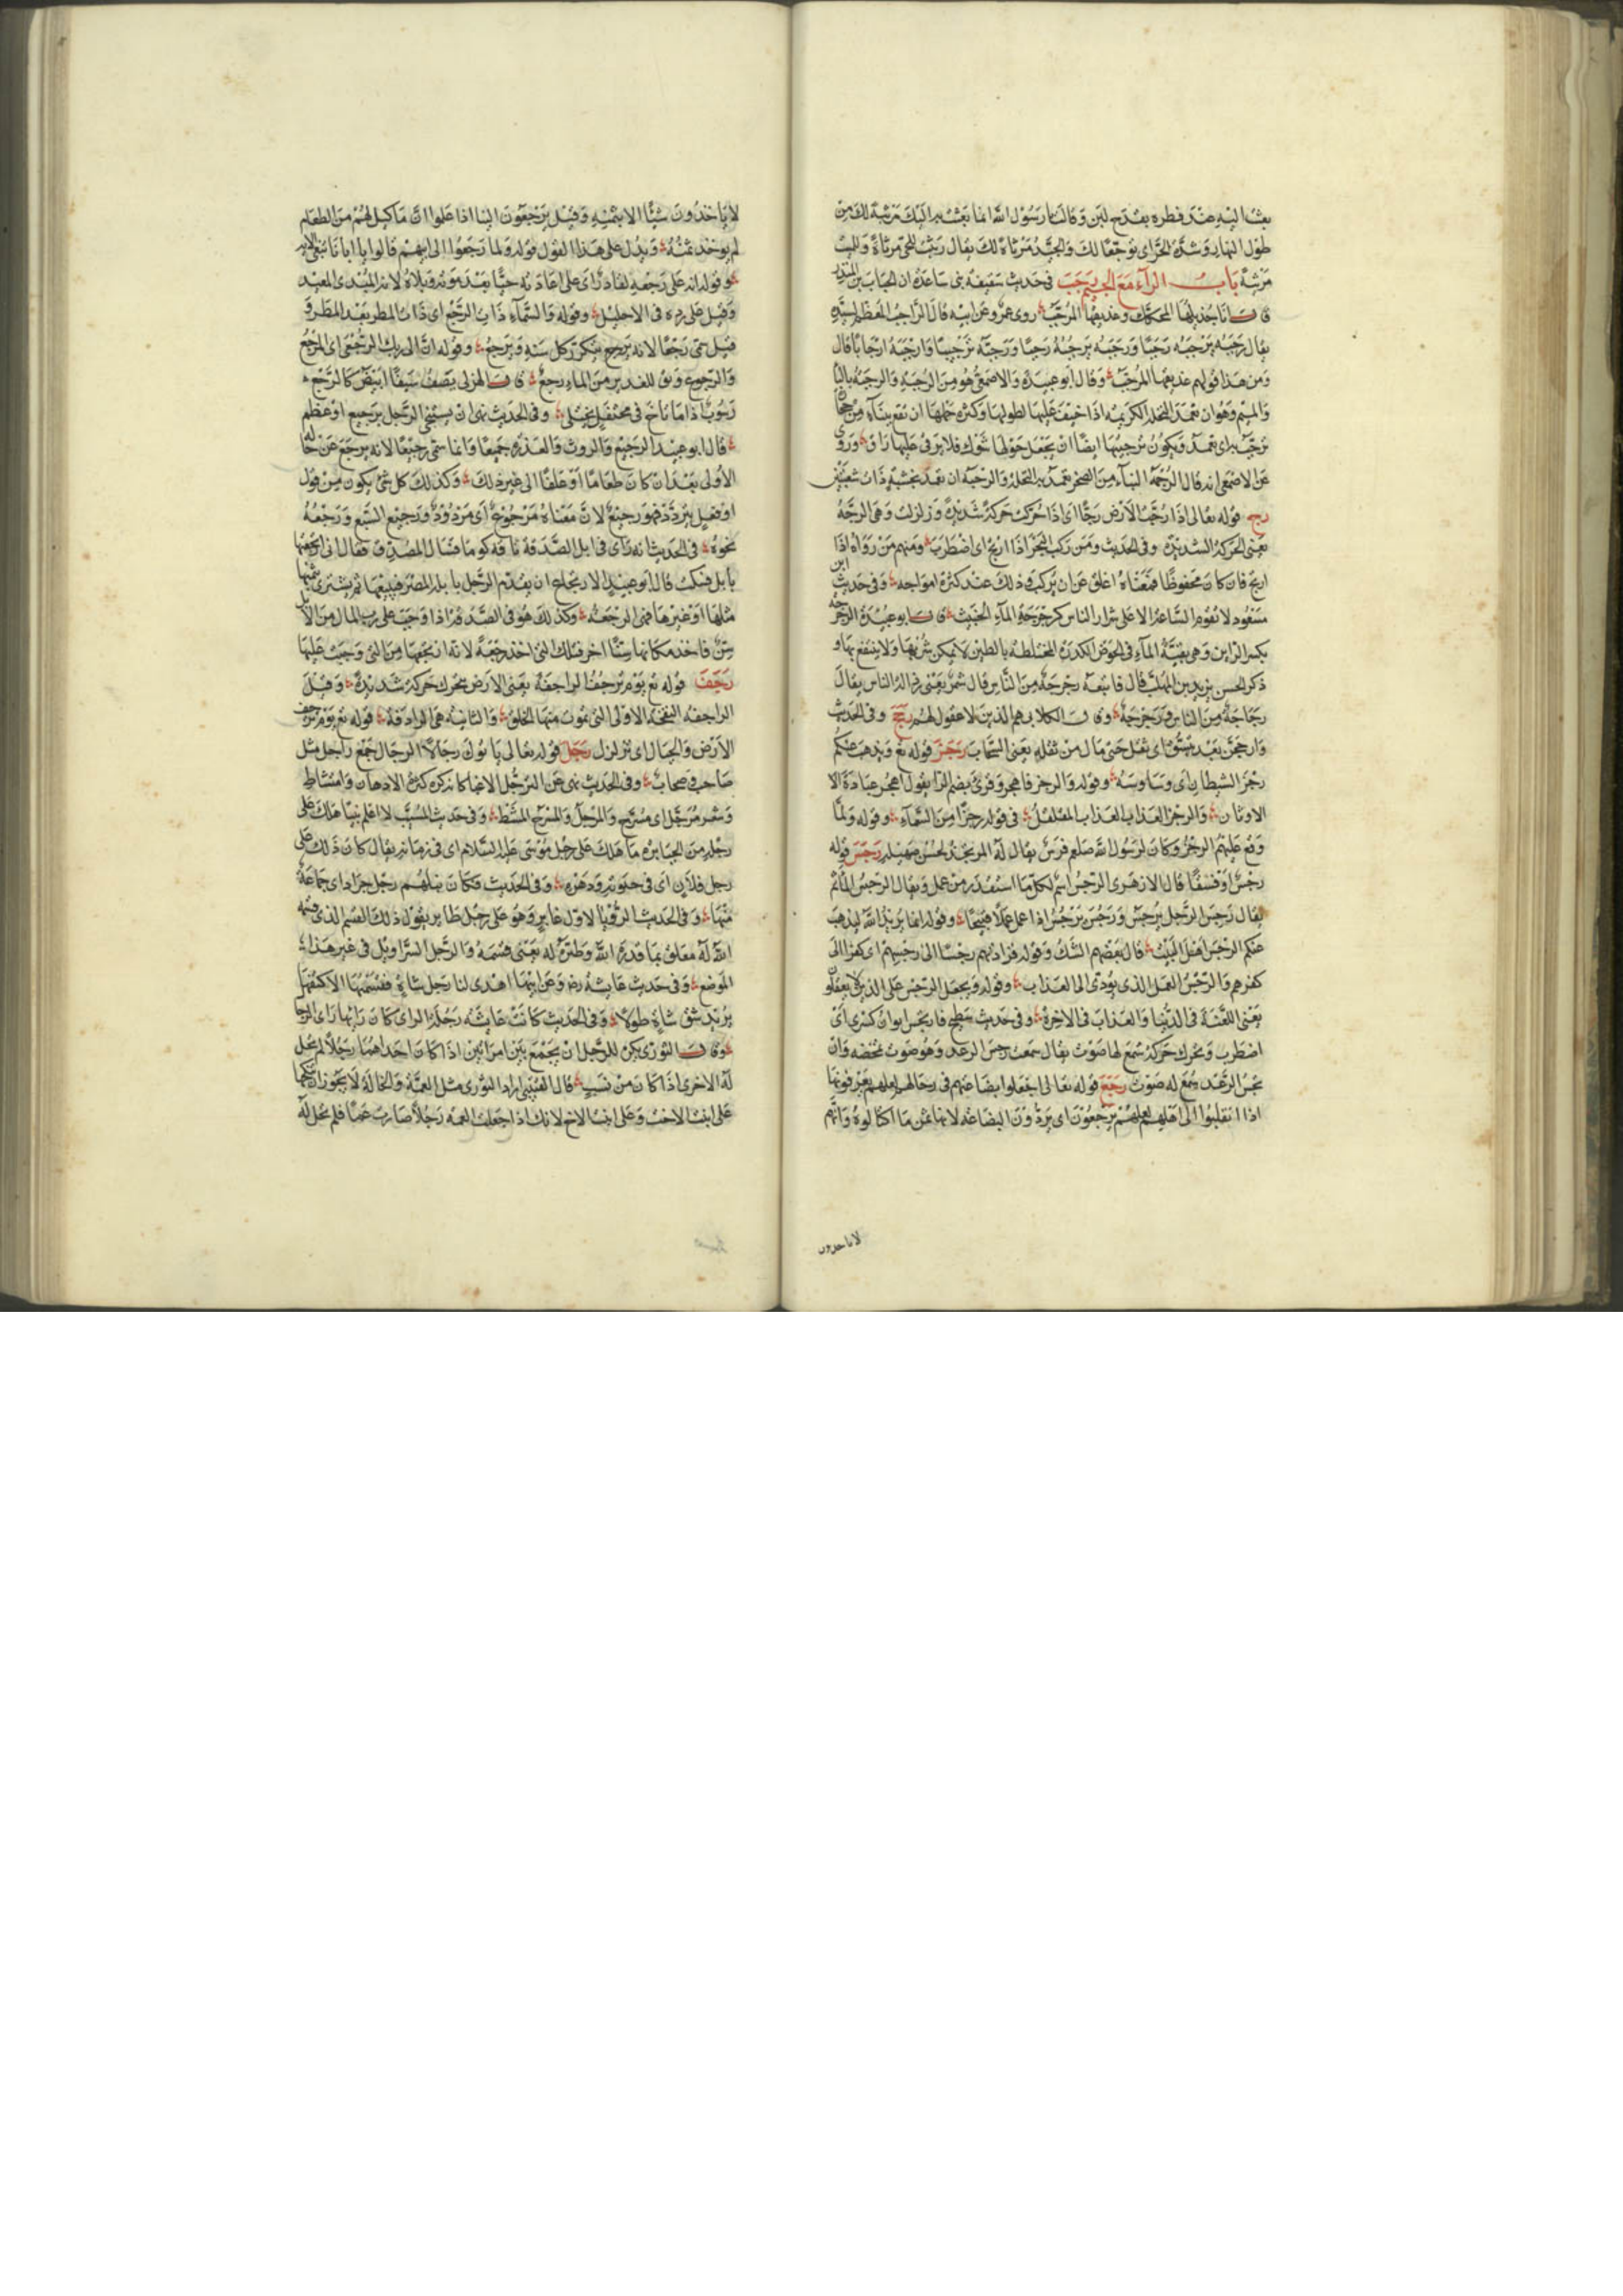 بعثت اليه عند فطره بقدح لبن وقالت يا رسول الله انما بعثت به اليك مرثية لك من
طول النهار وشدة الحر اي توجعا لك والجيد مرثاة لك يقال رثيت للحي مرثاة وللميت
مرثية باب الراء مع الجيم رجب في حديث سقيفة بني ساعدة ان الحباب بن المنذر
قال انا جذيلها المحكك وعذيقها المرجب روى عمرو عن ابيه قال الراجب المعظم لسيده
يقال رجبه يرجبه رجبا ورجبه يرجبه رجبا ورجبه ترجيبا وارجبه ارجابا قال
ومن هذا قولهم عذيقها المرجب وقال ابو عبيدة والاصمعي هو من الرجبة والرجبة بالباء
والميم وهو ان تعمد النخلة الكريمة اذا خيف عليها لطولها وكثرة حملها ان تقع ببناء من حجارة
ترجب به اي تعمد ويكون ترجيبها ايضا ان يجعل حولها شوك فلا يرقى عليها راق وروي
عن الاصمعي انه قال الرجمة البناء من الصخر تعمد به النخلة والرجبة ان تعمد بخشبة ذات شعبتين
رج قوله تعالى اذا رجت الارض رجا اي اذا حركت حركة شديدة وزلزلت وهي الرجة
يعني الحركة الشديدة وفي الحديث ومن ركب البحر اذا ارتج اي اضطرب ومنهم من رواه اذا
ارتج فان كان محفوظا فمعناه اغلق عن ان يركب وذلك عند كثرة امواجه وفي حديث ابن
مسعود لا تقوم الساعة الا على شرار الناس كرجرجة الماء الخبيث قال ابو عبيدة الرجرجة
بكسر الراءين وهي بقية الماء في الحوض الكدرة المختلطة بالطين لا يمكن شربها ولا ينتفع بها و
ذكر الحسن يزيد بن المهلب فقال فاتبعه رجرجة من الناس قال شمر يعني رذالة الناس يقال
رجاجة من الناس ورجرجة وقال الكلابي هم الذين لا عقول لهم رجح وفي الحديث
وارجحن بعد تبسق اي ثقل حتى مال من ثقله يعني السحاب رجز قوله تع ويذهب عنكم
رجز الشيطان اي وساوسه وقوله والرجز فاهجر وقرئ بضم الراء يقول اهجر عبادة الا
الاوثان والرجز العذاب العذاب المقلقل في قوله رجزا من السماء وقوله ولما
وقع عليهم الرجز وكان لرسول الله صلعم فرس يقال له المرتجز لحسن صهيله رجس قوله
رجس او فسقا قال الازهري الرجس اسم لكل ما استقذر من عمل ويقال الرجس المأثم
يقال رجس الرجل يرجس ورجس يرجس اذا عمل عملا قبيحا وقوله انما يريد الله ليذهب
عنكم الرجس اهل البيت قال بعضهم الشك وقوله فزادتهم رجسا الى رجسهم اي كفرا الى
كفرهم والرجس العمل الذي يؤدي الى العذاب وقوله ويجعل الرجس على الذين لا يعقلون
يعني اللعنة في الدنيا والعذاب في الاخرة وفي حديث سطيح فارتجس ايوان كسرى اي
اضطرب وتحرك حركة سمع لها صوت يقال سمعت رجس الرعد وهو صوت تمخضه وان
تجس الرعد يسمع له صوت رجع قوله تعالى اجعلوا بضاعتهم في رحالهم لعلهم يعرفونها
اذا انقلبوا الى اهلهم لعلهم يرجعون اي يردون البضاعة لانها ثمن ما اكتالوه وانهم
لا ياخذون
لا ياخذون شيئا الا بثمنه وقيل يرجعون الينا اذا علموا ان ما كيل لهم من الطعام
لم يوخذ ثمنه ويدل على هذا القول قوله ولما رجعوا الى ابيهم قالوا يا ابانا ما نبغي الاية
وقوله انه على رجعه لقادر اي على اعادته حيا بعد موته وبلاه لانه المبدئ المعيد
وقيل على رده في الاحليل وقوله والسماء ذات الرجع اي ذات المطر بعد المطر و
قيل سمي رجعا لانه يرجع يتكرر كل سنة ويرجع وقوله ان الى ربك الرجعى اي المرجع
والرجوع ويق للغدير من الماء رجع قال الهذلي يصف سيفا ابيض كالرجع
رسوب اذا ما ثاخ في محتفل يختلي وفي الحديث نهى ان يستنجي الرجل برجيع او عظم
قال ابو عبيد الرجيع والروث والعذرة جميعا وانما سمي رجيعا لانه يرجع عن حاله
الاولى بعد ان كان طعاما او علفا الى غير ذلك وكذلك كل شئ يكون من قول
او فعل يتردد فهو رجيع لان معناه مرجوع اي مردود ورجيع السبع ورجعه
نجوه في الحديث انه راى في ابل الصدقة ناقة كوماء فسال المصدق فقال اني ارتجعتها
بابل فسكت قال ابو عبيد الارتجاع ان يقدم الرجل بابله المصر فيبيعها ثم يشتري بثمنها
مثلها او غيرها فهي الرجعة وكذلك هو في الصدقة اذا وجب على رب المال من الابل
سن فاخذ مكانها سنا اخر فتلك التي اخذ رجعة لانه ارتجعها من التي وجبت عليها
رجف قوله تع يوم ترجف الراجفة يعني الارض تتحرك حركة شديدة وقيل
الراجفة النفخة الاولى التي تموت منها الخلق والثانية هي الرادفة قوله تع يوم ترجف
الارض والجبال اي تزلزل رجل قوله تعالى ياتوك رجالا الرجال جمع راجل مثل
صاحب وصحاب وفي الحديث نهى عن الترجل الا غبا كانه كره كثرة الادهان وامتشاط
وشعر مرجل اي مسرح والمرجل والمسرح المشط وفي حديث المسيب لا اعلم نبيا هلك على
رجله من الجبابرة ما هلك على رجل موسى عليه السلام اي في زمانه يقال كان ذلك على
رجل فلان اي في حيوته ودهره وفي الحديث فكان نبلهم رجل جراد اي جماعة
منها وفي الحديث الرؤيا لاول عابر وهو على رجل طاير يقول ذلك القسم الذي قسمه
الله له معلق بما قدره الله وطيره له يعني قسمه والرجل السراويل في غير هذا
الموضع وفي حديث عايشة رض وعن ابيها اهدى لنا رجل شاة فقسمتها الا كتفها
يريد شق شاة طولا وفي الحديث كانت عايشة رجلة الراي كان رايها راي الرجال
وقال الثوري يكره للرجل ان يجمع بين امراتين اذا كانت احداهما رجلا لم تحل
له الاخرى اذا كان من نسب قال القتيبي اراد الثوري مثل العمة والخالة لا يجوز ان تنكحها
على ابنة الاخت وعلى ابنة الاخ لانك اذا جعلت العمة رجلا صارت عما فلم تحل له